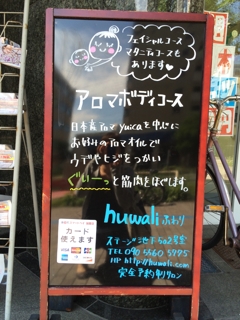 フェイシャルコース
マタニティコースも
あります♥
アロマボディコース
日本産アロマ yuicaを中心に
お好みのアロマオイルで
ウデやヒジをつかい
ぐいーっと筋肉をほぐします。
huwali ふわり
ステージ池下502号室
TEL 090 5560 5975
HP http://huwali.com
完全予約制サロン
カード
使えます
VISA